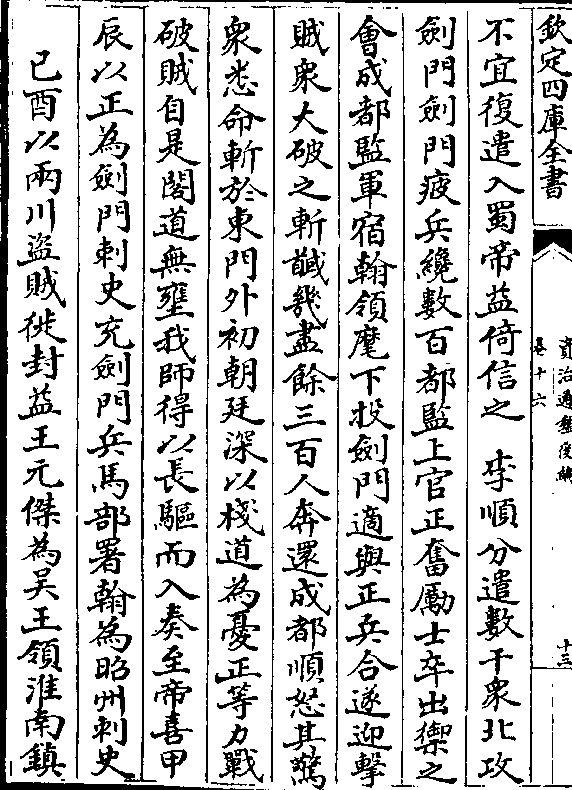 欽定四庫全書
資治通鑑後編
卷十六
十三
不宜復遣入蜀帝益倚信之 李順分遣數千衆北攻
劍門劍門疲兵纔數百都監上官正奮勵士卒出禦之
會成都監軍宿翰領麾下投劍門適與正兵合遂迎擊
賊衆大破之斬馘幾盡餘三百人奔還成都順怒其驚
衆悉命斬於東門外初朝廷深以棧道為憂正等力戰
破賊自是閣道無壅我師得以長驅而入奏至帝喜甲
辰以正為劍門刺史充劍門兵馬部署翰為昭州刺史
己酉以兩川盜賊徙封益王元傑為吳王領淮南鎮